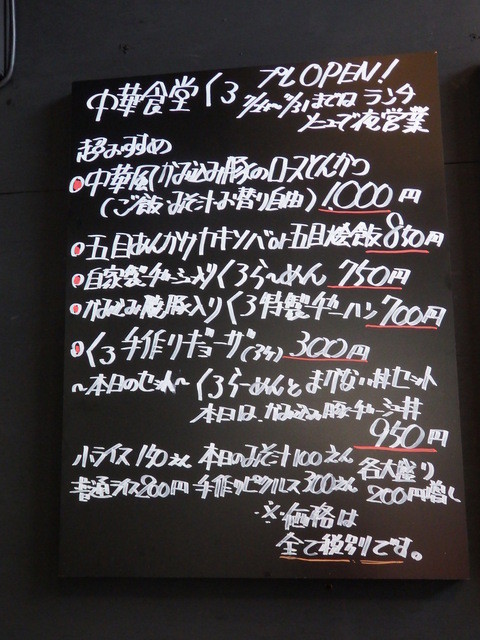 プレOPEN!
中華食堂くろ までは ランチ
メニューで夜営業
超おすすめ
中華風かみこみ豚のロースとんかつ
(ご飯 みそ汁お替り自由) 1,000円
五目あんかけヤキソバor五目燴飯 850円
自家製チャーシュー入りくろらーめん 750円
かみこみ焼豚入りくろ特製チャーハン 700円
くろ手作りギョーザ(3ケ) 300円
〜本日のセット〜 くろらーめんとまかない丼セット
本日は、かみこみ豚チャーシュー丼
950円
小ライス150えん 本日のみそ汁100えん 各大盛り
普通ライス200円 手作りピクルス300えん 200円増し
※価格は
全て税別です。